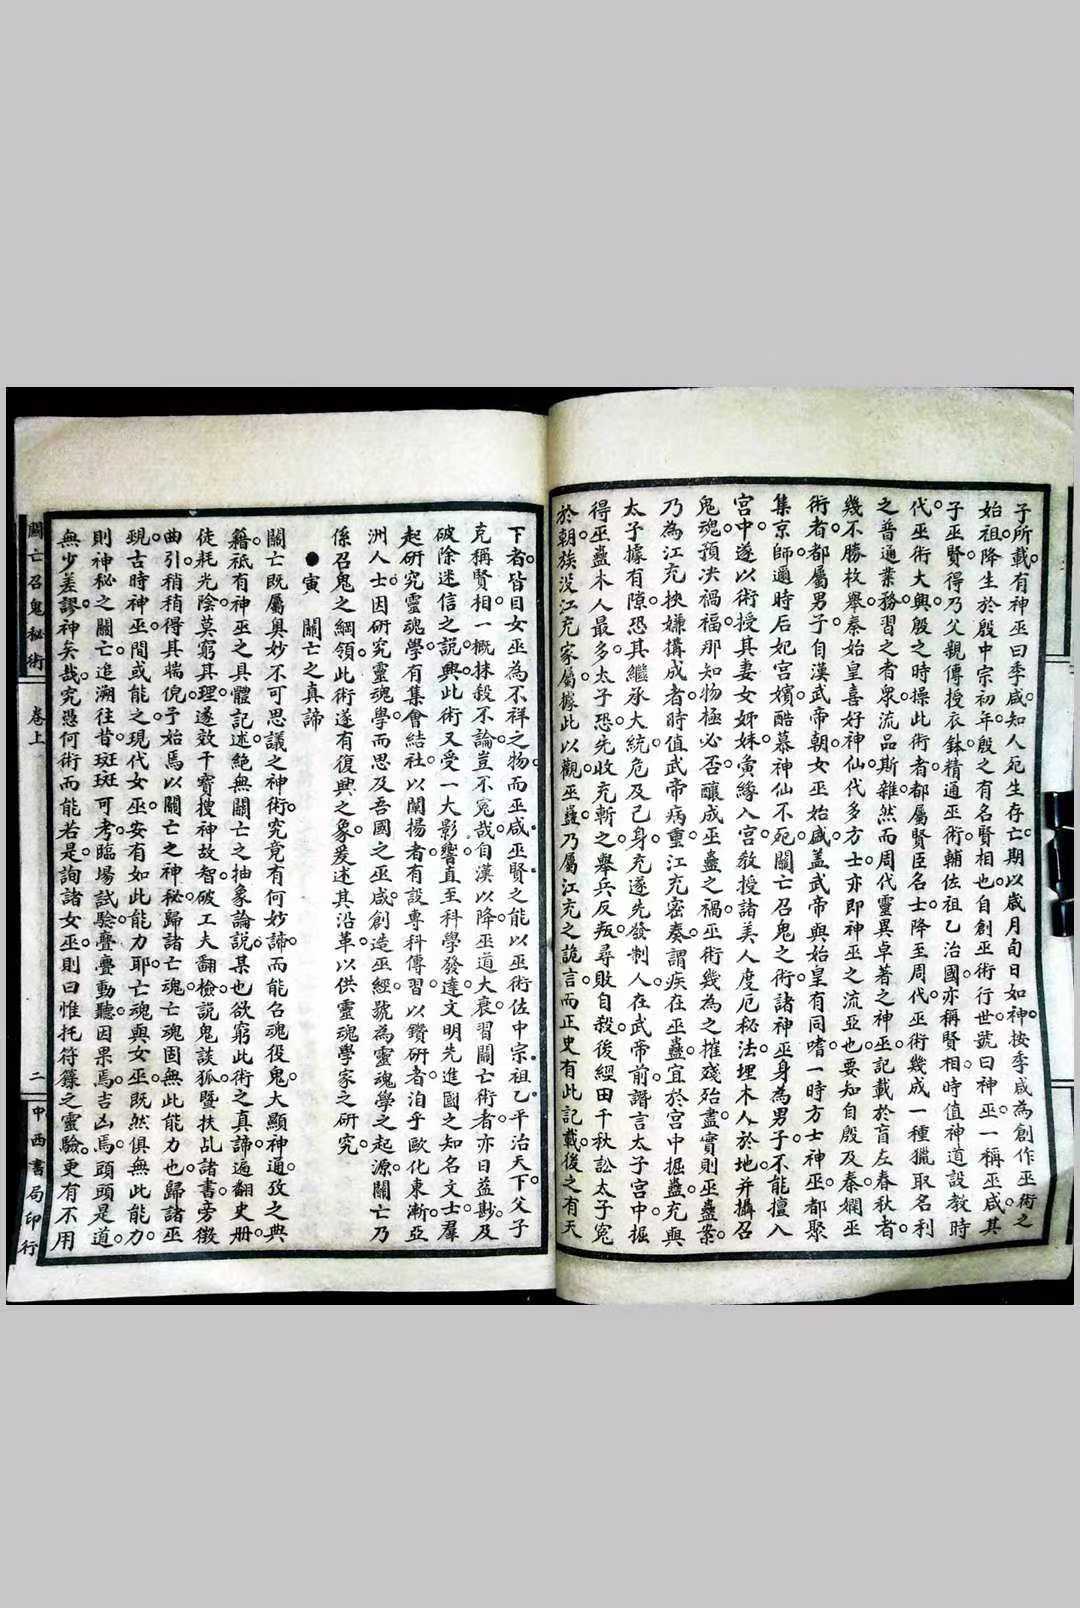 子所載有神巫曰季咸知人死生存亡期以歲月旬日如神。按季咸為創作巫術之
始祖。降生於殷中宗初年。殷之有名賢相也。自創巫術行世。號曰神巫。一稱巫咸其
子巫賢得乃父親傳授衣鉢。精通巫術。輔佐祖乙治國。亦稱賢相。時值神道設教時
代。巫術大興。殷之時操此術者。都屬賢臣名士。降至周代。巫術幾成一種獵取名利
之普通業務。習之者衆。流品斯雜。然而周代靈異卓著之神巫。記載於盲左春秋者。
幾不勝枚舉。秦始皇喜好神仙。代多方士。亦即神巫之流亞也。要知自殷及秦。嫺巫
術者。都屬男子。自漢武帝朝。女巫始盛。盖武帝與始皇有同嗜。一時方士神巫。都聚
集京師。邇時后妃宮嬪。酷慕神仙不死關亡召鬼之術。諸神巫身為男子。不能擅入
宮中。遂以術授其妻女姊妹。寅緣入宮。敎授諸美人度厄秘法。埋木人於地。并攝召
鬼魂。預决禍福。那知物極必否。釀成巫蠱之禍。巫術幾為之摧殘殆盡。實則巫蠱案。
乃為江充挾嫌搆成者。時值武帝病重。江充密奏。謂疾在巫蠱。宜於宮中掘蠱。充與
太子據有隙。恐其繼承大統。危及己身。充遂先發制人。在武帝前譖言太子宮中掘
得巫蠱木人最多。太子恐。先收充斬之。舉兵反叛。尋敗自殺。後經田千秋訟太子寃
於朝。族沒江充家屬。據此以觀。巫蠱乃屬江充之詭言。而正史有此記載。後之有天
下者。皆目女巫為不祥之物。而巫咸巫賢之能以巫術佐中宗祖乙平治天下。父子
克稱賢相。一概抹殺不論。豈不冤哉。自漢以降。巫道大衰。習關亡術者。亦日益尠。及
破除迷信之說興。此術又受一大影響。直至科學發達。文明先進國之知名文士。羣
起研究靈魂學。有集會結社以闡揚者。有設專科傳習以鑽研者。洎乎歐化東漸。亞
洲人士。因研究靈魂學。而思及吾國之巫咸創造巫經。號為靈魂學之起源。關亡乃
係召鬼之綱領。此術遂有復興之象。爰述其沿革。以供靈魂學家之研究。
●寅　關亡之真諦
關亡既屬奥妙不可思議之神術。究竟有何妙諦。而能名魂役鬼。大顯神通。攷之典
籍。祗有神巫之具體記述。絕無關亡之抽象論說。某也欲窮此術之真諦。遍翻史册。
徒耗光陰。莫窮其理。遂效干寶搜神故智。破工夫翻檢說鬼談狐。暨扶乩諸書。旁徵
曲引。稍稍得其端倪。予始焉以關亡之神秘。歸諸亡魂。亡魂固無此能力也。歸諸巫
現。古時神巫。間或能之。現代女巫。安有如此能力耶。亡魂與女巫。既然俱無此能力。
則神秘之關亡。追溯往昔。斑斑可考。臨場試驗。亹亹動聽。因果焉吉凶焉。頭頭是道。
無少差謬。神矣哉。究憑何術而能若是。詢諸女巫。則曰惟托符籙之靈驗。更有不用
關亡召鬼秘術　卷上　二　中西書局印行